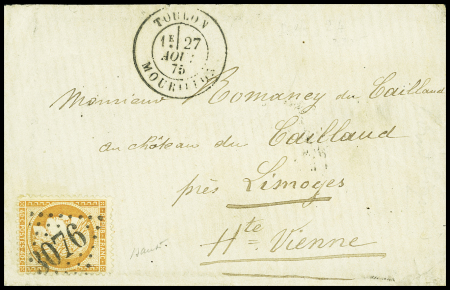 TOULON
1E 27
AOUT
75
MOURILLON
Monsieur Romaney du Caillaud
au château du Caillaud
près Limoges
Hte Vienne
3076